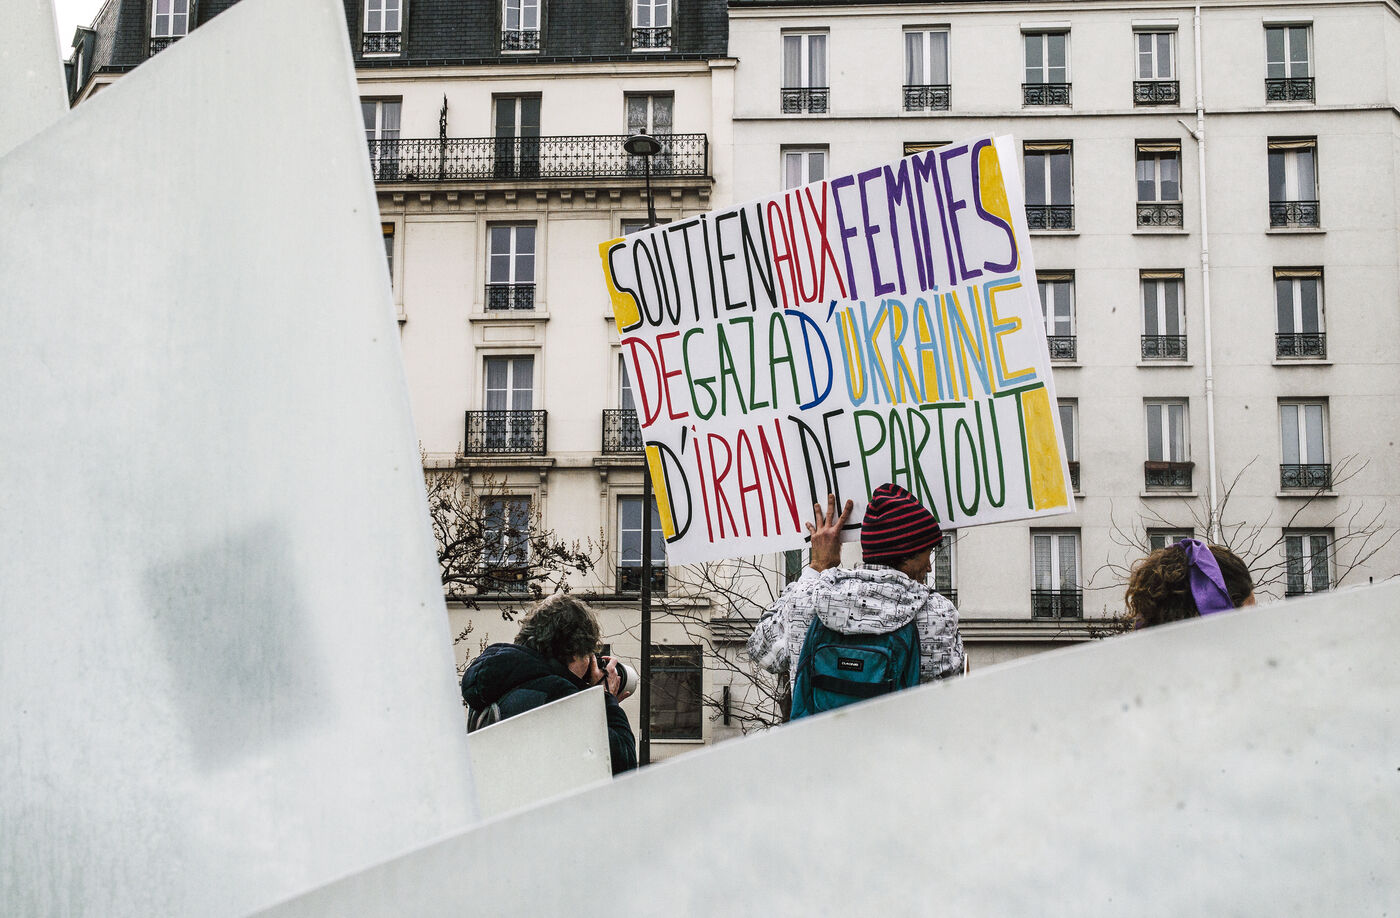 SOUTIEN AUX FEMMES
DE GAZA D'UKRAINE
D'IRAN DE PARTOUT
DAKINE